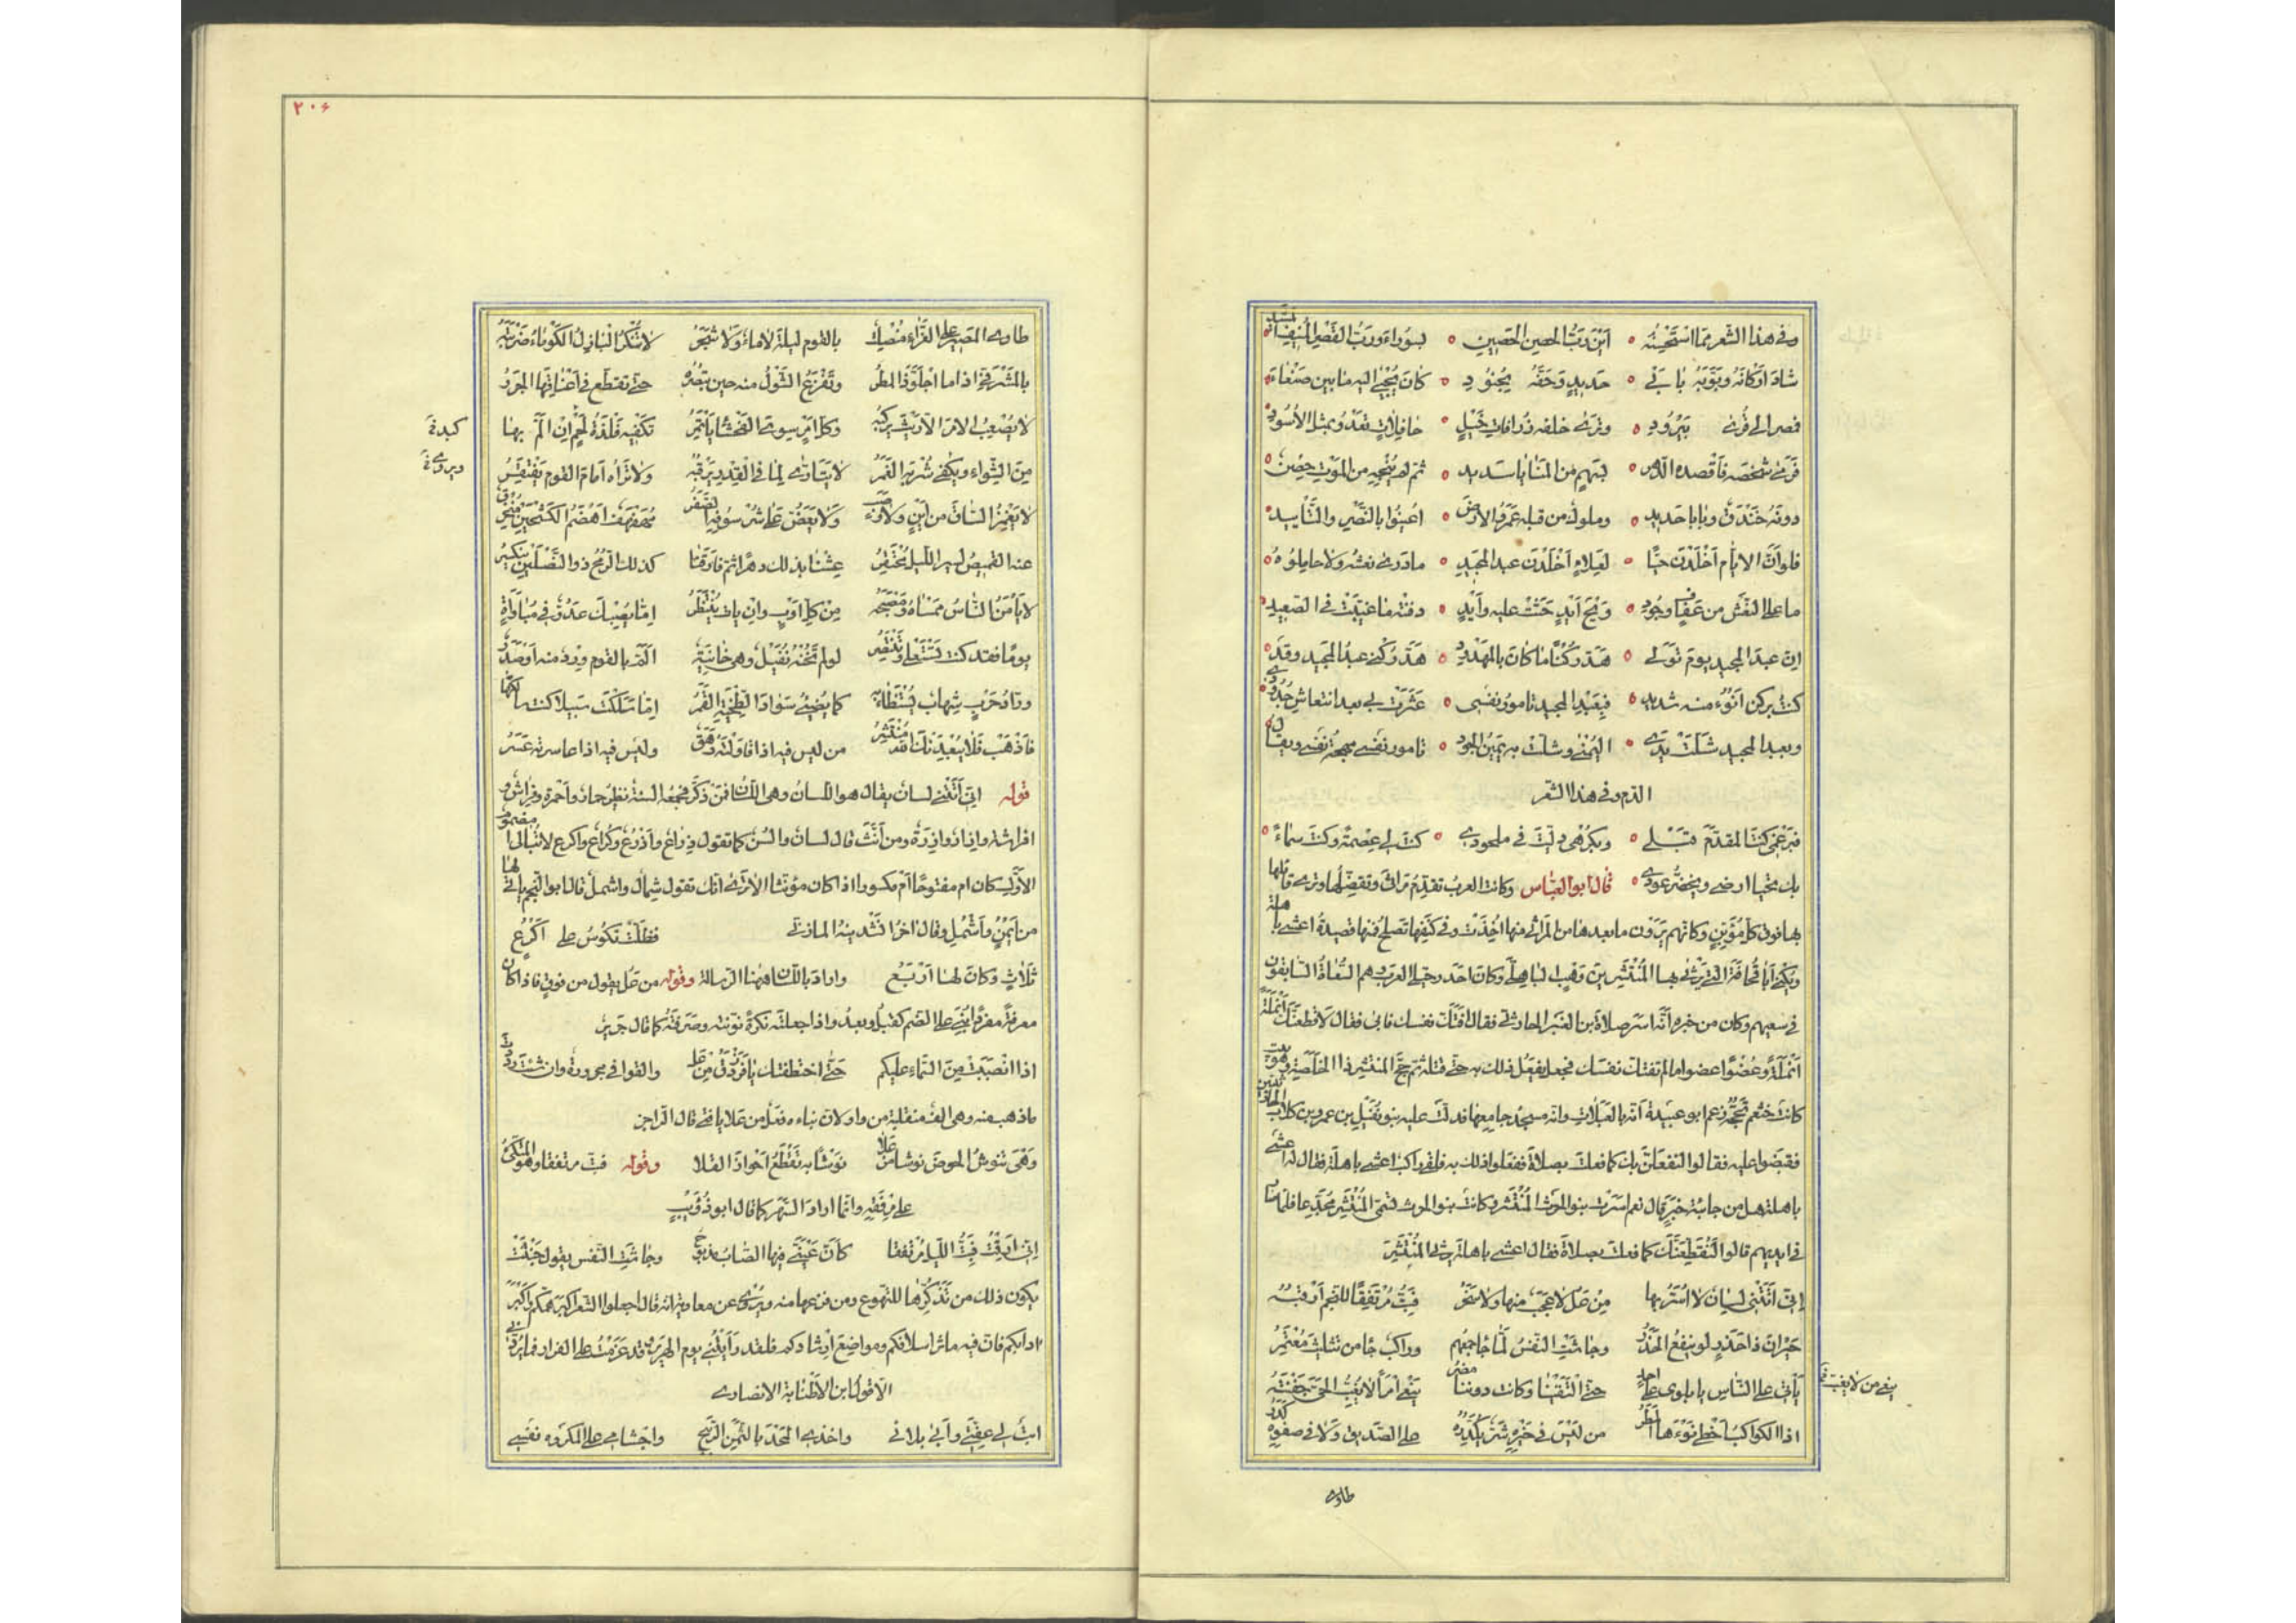 وفي هذا الشعر مما استحسنه أين رب الحصن الحصين بسوراء ورب القصر المنيف المشيد
شاد أركانه وبوبه بابي حديد وحفه بجنود كان يجبى اليه ما بين صنعاء
فمصر الى قرى بيرود وترى خلفه زرافات خيل حافلات تعدو بمثل الأسود
فرمى شخصه فأقصده الدهر بسهم من المنايا سديد ثم لم ينجه من الموت حصن
دونه خندق وبابا حديد وملوك من قبله عمروا الارض اعينوا بالنصر والتأييد
فلو ان الايام أخلدن حيا لعلاء أخلدن عبد المجيد ما درى نعشه ولا حاملوه
ما على النعش من عفاف وجود ويح أيد حثت عليه وأيد دفنته ما غيبت في الصعيد
ان عبد المجيد يوم تولى هد ركنا ما كان بالمهدود هد ركني عبد المجيد وقد
كنت بركن أنوء منه شديد فبعبد المجيد تامور نفسي عثرت بي بعد انتعاش جدودي
وبعبد المجيد شلت يدي اليمنى وشلت به يمين الجود تامور نفسي مهجة نفسي ويقال
الدم وفي هذا الشعر
فبرغمي كنت المقدم قبلي وبكرهي دليت في ملحودي كنت لي عصمة وكنت سماء
بك تحيا ارضي ويخضر عودي قال ابو العباس وكانت العرب تقدم مراثي وتفضلها وترى قائلها
بها فوق كل مؤبن وكانهم يرون ما بعدها من المراثي منها اخذت وفي كنفها تصلح فمنها قصيدة اعشى باهلة
ويكنى أبا قحافة التي يرثي بها المنتشر بن وهب الباهلي وكان احد رجلي العرب وهم السعاة السابقون
في سعيهم وكان من خبره أنه اسر صلاءة بن العنبر الحارثي فقال افتك نفسك فابى فقال لاقطعنك أنملة
أنملة وعضوا عضوا ما لم تفتك نفسك فجعل يفعل ذلك به حتى قتله ثم حج المنتشر ذا الخلصة وهو بيت
كانت خثعم تحجه زعم ابو عبيدة أنه بالعبلات وانه مسجد جامعها فدلت عليه بنو نفيل بن عمرو بن كلاب الحارثيين
فقبضوا عليه فقالوا لنفعلن بك كما فعلت بصلاءة ففعلوا ذلك به فلقي راكب اعشى باهلة فقال له اعشى
باهلة هل من جائبة خبر قال نعم اسرت بنو الحرث المنتشر وكانت بنو الحرث تسمى المنتشر مجدعا فلما صار
في ايديهم قالوا لنقطعنك كما فعلت بصلاءة فقال اعشى باهلة يرثي المنتشر
اني أتتني لسان لا اسر بها من عل لا عجب منها ولا سخر فبت مرتفقا للنجم أرقبه
حيران ذا حذر لو ينفع الحذر وجاشت النفس لما جاء جمعهم وراكب جاء من تثليث معتمر
يأتي على الناس لا يلوي على احد حتى التقينا وكانت دوننا مضر ينعى امرأ لا تغب الحي جفنته
ينعى من لا يغب
اذا الكواكب أخطى نوءها المطر من ليس في خيره شر يكدره على الصديق ولا في صفوه كدر
طاوى
٢٠۶
طاوى المصير على العزاء منصلت بالقوم ليلة لا ماء ولا شجر لا تنكر البازل الكوماء ضربته
بالمشرفي اذا ما اجلوذ المطر وتفزع الشول منه حين تبصره حتى تقطع في أعناقها الجرر
لا يصعب الامر الا ريث يركبه وكل امر سوى الفحشاء يأتمر تكفيه فلذة لحم ان ألم بها
كبد
من الشواء ويكفي شربه الغمر لا يتأرى لما في القدر يرقبه ولا تراه أمام القوم يقتفر
ويروى
لا يغمز الساق من أين ولا وصب ولا يعض على شرسوفه الصفر مهفهف اهضم الكشحين منخرق
عنه القميص لسير الليل محتقر عشنا بذلك دهرا ثم فارقنا كذلك الرمح ذو النصلين ينكسر
لا يأمن الناس ممساه ومصبحه من كل أوب وان بات ينتظر اما يصبك عدو في مباوأة
يوما فقد كنت تستعلي وتنتصر لو لم تخنه نفيل وهي خائنة ألم بالقوم ورد منه أو صدر
وراد حرب شهاب يستضاء به كما يضيء سواد الطخية القمر اما سلكت سبيلا كنت سالكها
فاذهب فلا يبعدنك الله منتشر من ليس فيه اذا قاولته رهق وليس فيه اذا عاسرته عسر
قوله اني أتتني لسان يقال هو اللسان وهي اللسان فمن ذكر فجمعه السنة نظير حمار وأحمرة وفراش و
افرشة وازار وازرة ومن أنث قال لسان وألسن كما تقول ذراع وأذرع وكراع واكرع لا تبالي أمضموم
الأول كان ام مفتوحا أم مكسورا اذا كان مؤنثا الا ترى انك تقول شمال واشمل قال ابو النجم يأتي لها
من أيمن وأشمل وقال اخر انشدنيه المازني فظلت تكوس على اكرع
ثلاث وكان لها أربع واراد باللسان ههنا الرسالة وقوله من عل يقول من فوق فاذا كان
معرفة مفردا بني على الضم كقبل وبعد واذا جعلته نكرة نونته وصرفته كما قال جرير
اذا انصببت من السماء عليكم حتى اختطفتك يا فرزدق من عل والقوافي مجرورة وان شئت رددت
ما ذهب منه وهي الف منقلبة من واو لان بناءه فعل من علا يا فتى قال الراجز
وهي تنوش الحوض نوشا من علا نوشا به تقطع اجواز الفلا وقوله فبت مرتفقا وهو المتكئ
على مرفقه وانما اراد السهر كما قال ابو ذؤيب
اني ارقت فبت الليل مرتفقا كأن عيني فيها الصاب مذبوح وجاشت النفس يقول خبثت
يكون ذلك من تذكرها للتهوع ومن فزعها منه ويروى عن معاوية انه قال اجعلوا الشعر اكبر همكم واكبر
ادابكم فان فيه مآثر اسلافكم ومواضع ارشادكم فلقد رأيتني يوم الهرير وقد عزمت على الفرار فما يردني
الا قول ابن الأطنابة الانصاري
ابت لي عفتي وأبى بلائي واخذي الحمد بالثمن الربيح واجشامي على المكروه نفسي